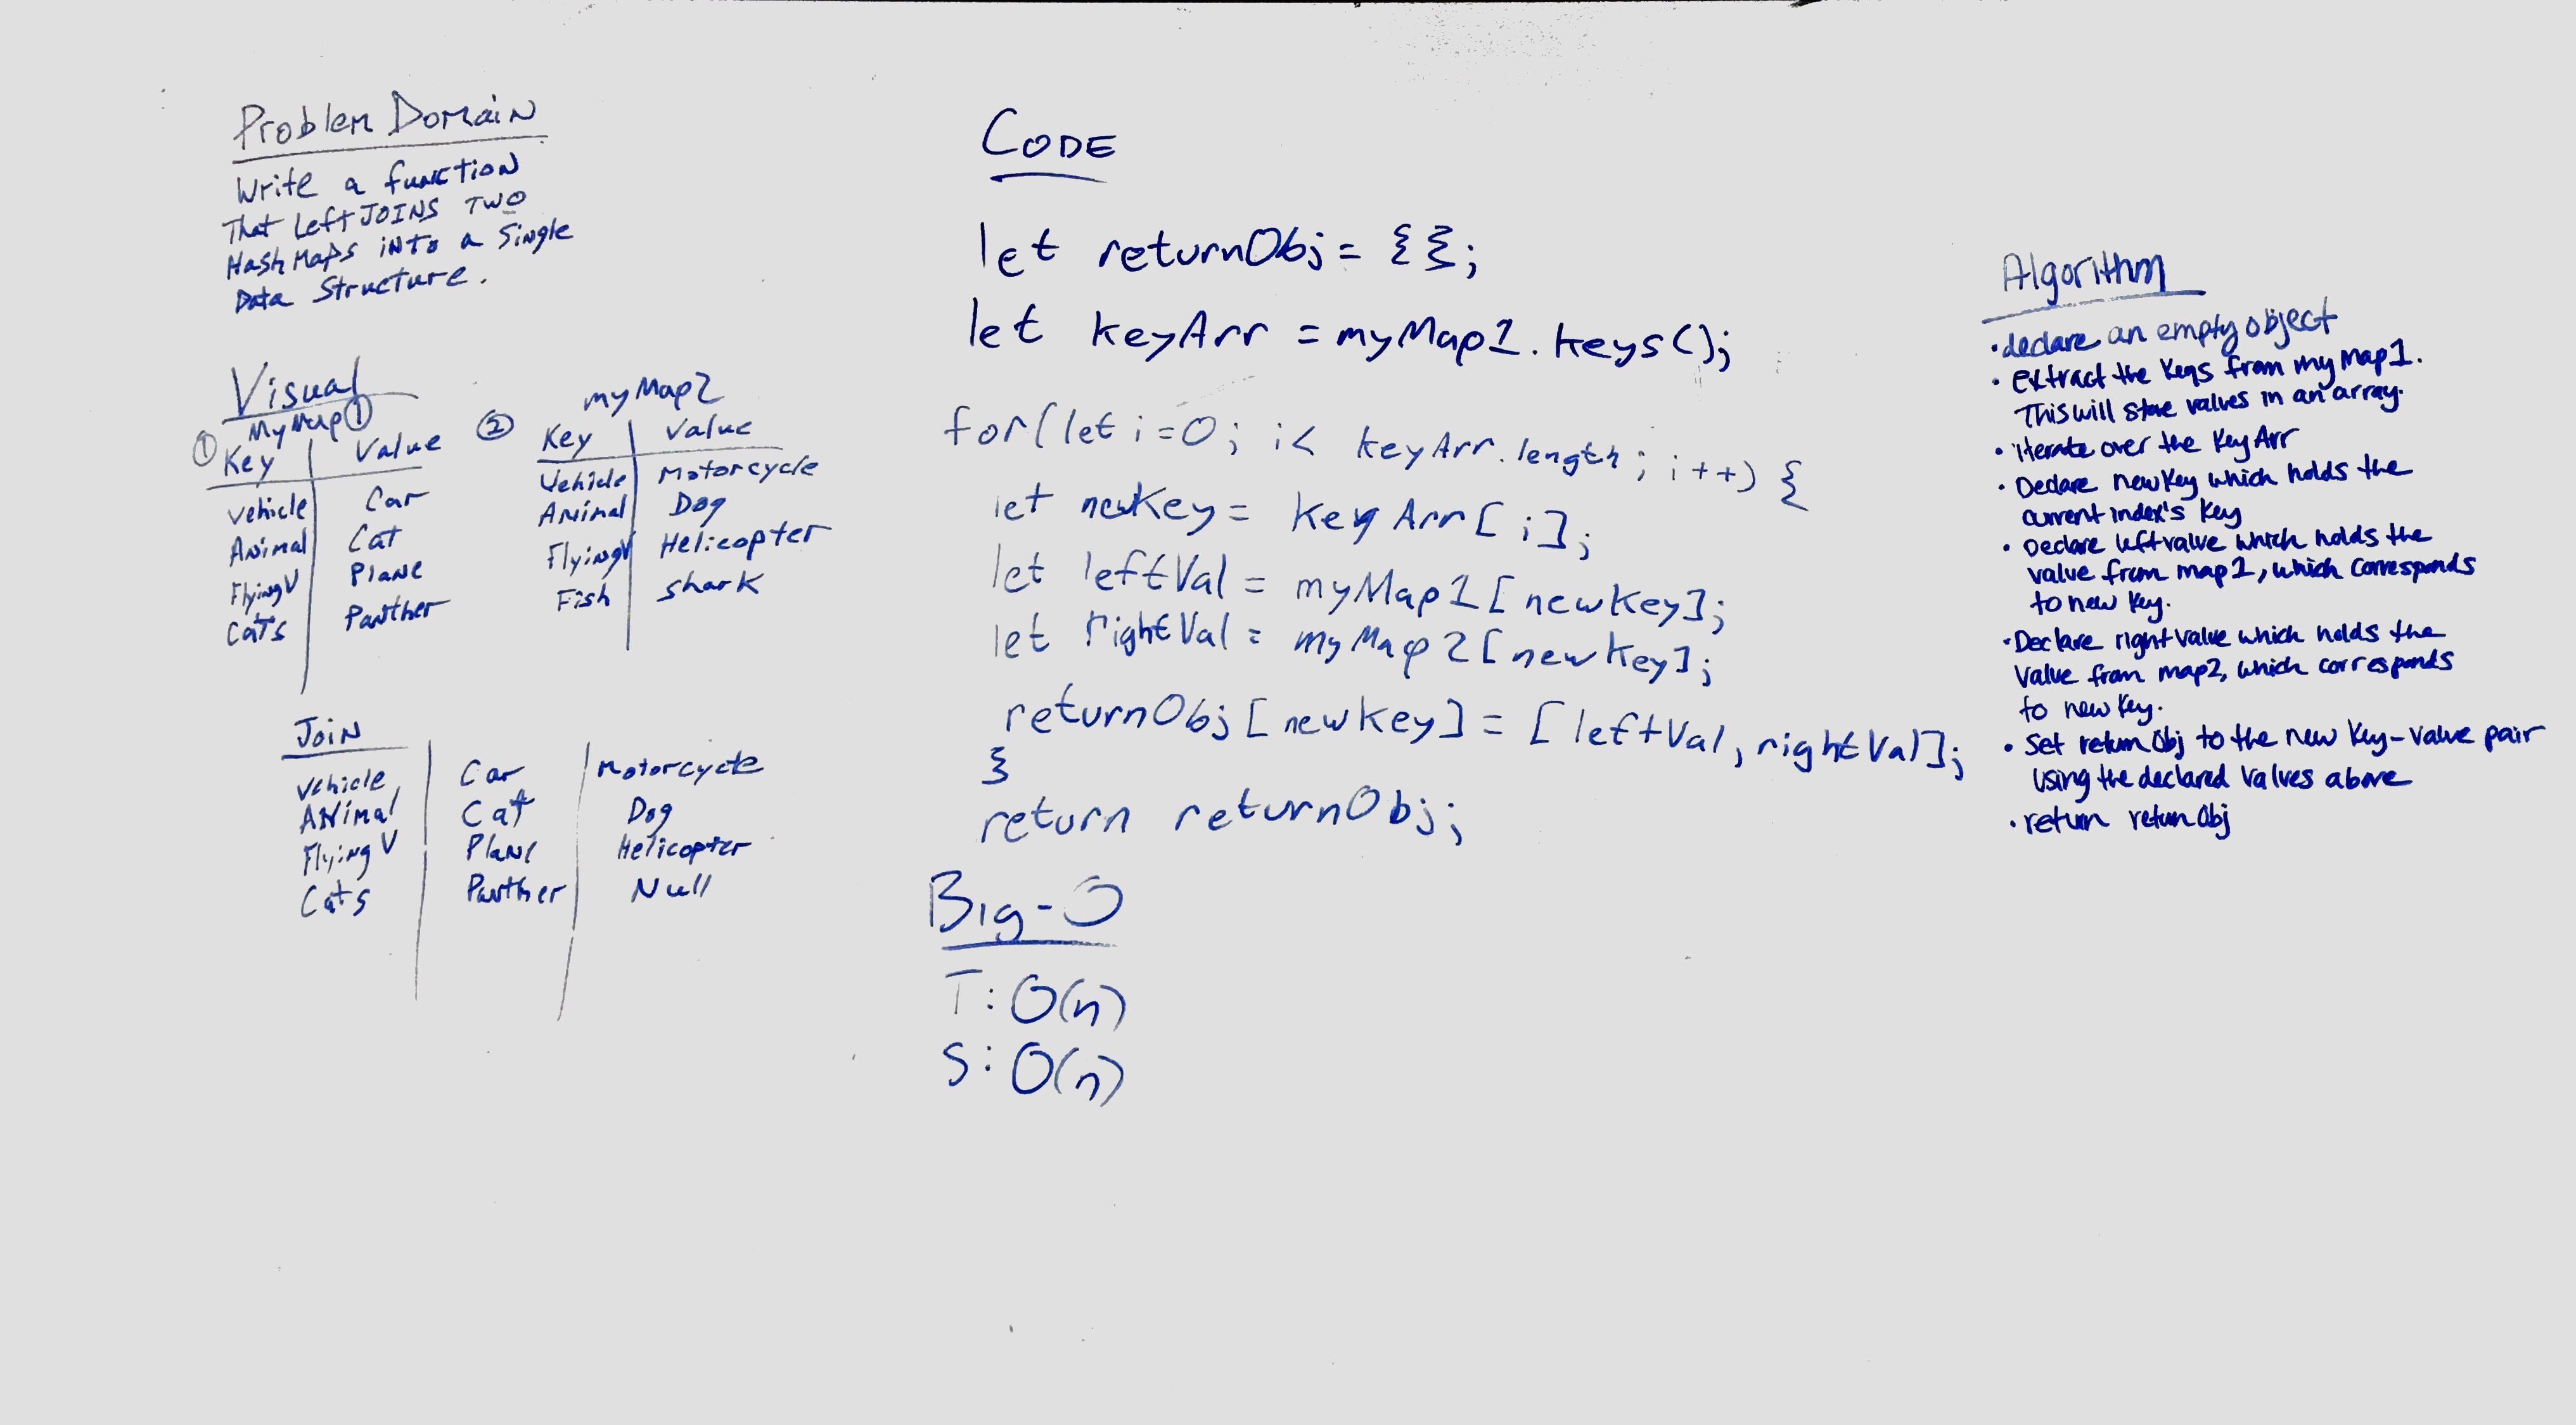 Problem Domain
Write a function
That Left JOINS TWO
Hash Maps into a Single
Data Structure.
Visual
① MyMap①
Key Value
vehicle Car
Animal Cat
FlyingV Plane
Cats Panther
② myMap2
Key Value
Vehicle Motorcycle
Animal Dog
FlyingV Helicopter
Fish shark
Join
Vehicle Car Motorcycle
Animal Cat Dog
FlyingV Plane Helicopter
Cats Panther Null
CODE
let returnObj = {};
let keyArr = myMap1.keys();
for(let i=0; i< keyArr.length; i++) {
let newKey = keyArr[i];
let leftVal = myMap1[newKey];
let rightVal = myMap2[newKey];
returnObj[newKey] = [leftVal, rightVal];
}
return returnObj;
Big-O
T: O(n)
S: O(n)
Algorithm
• declare an empty object
• Extract the keys from myMap1.
This will store values in an array.
• iterate over the KeyArr
• Declare newKey which holds the
current index's key
• Declare leftvalue which holds the
value from map1, which corresponds
to new key.
• Declare rightvalue which holds the
value from map2, which corresponds
to new key.
• Set returnObj to the new key-value pair
using the declared values above
• return returnObj